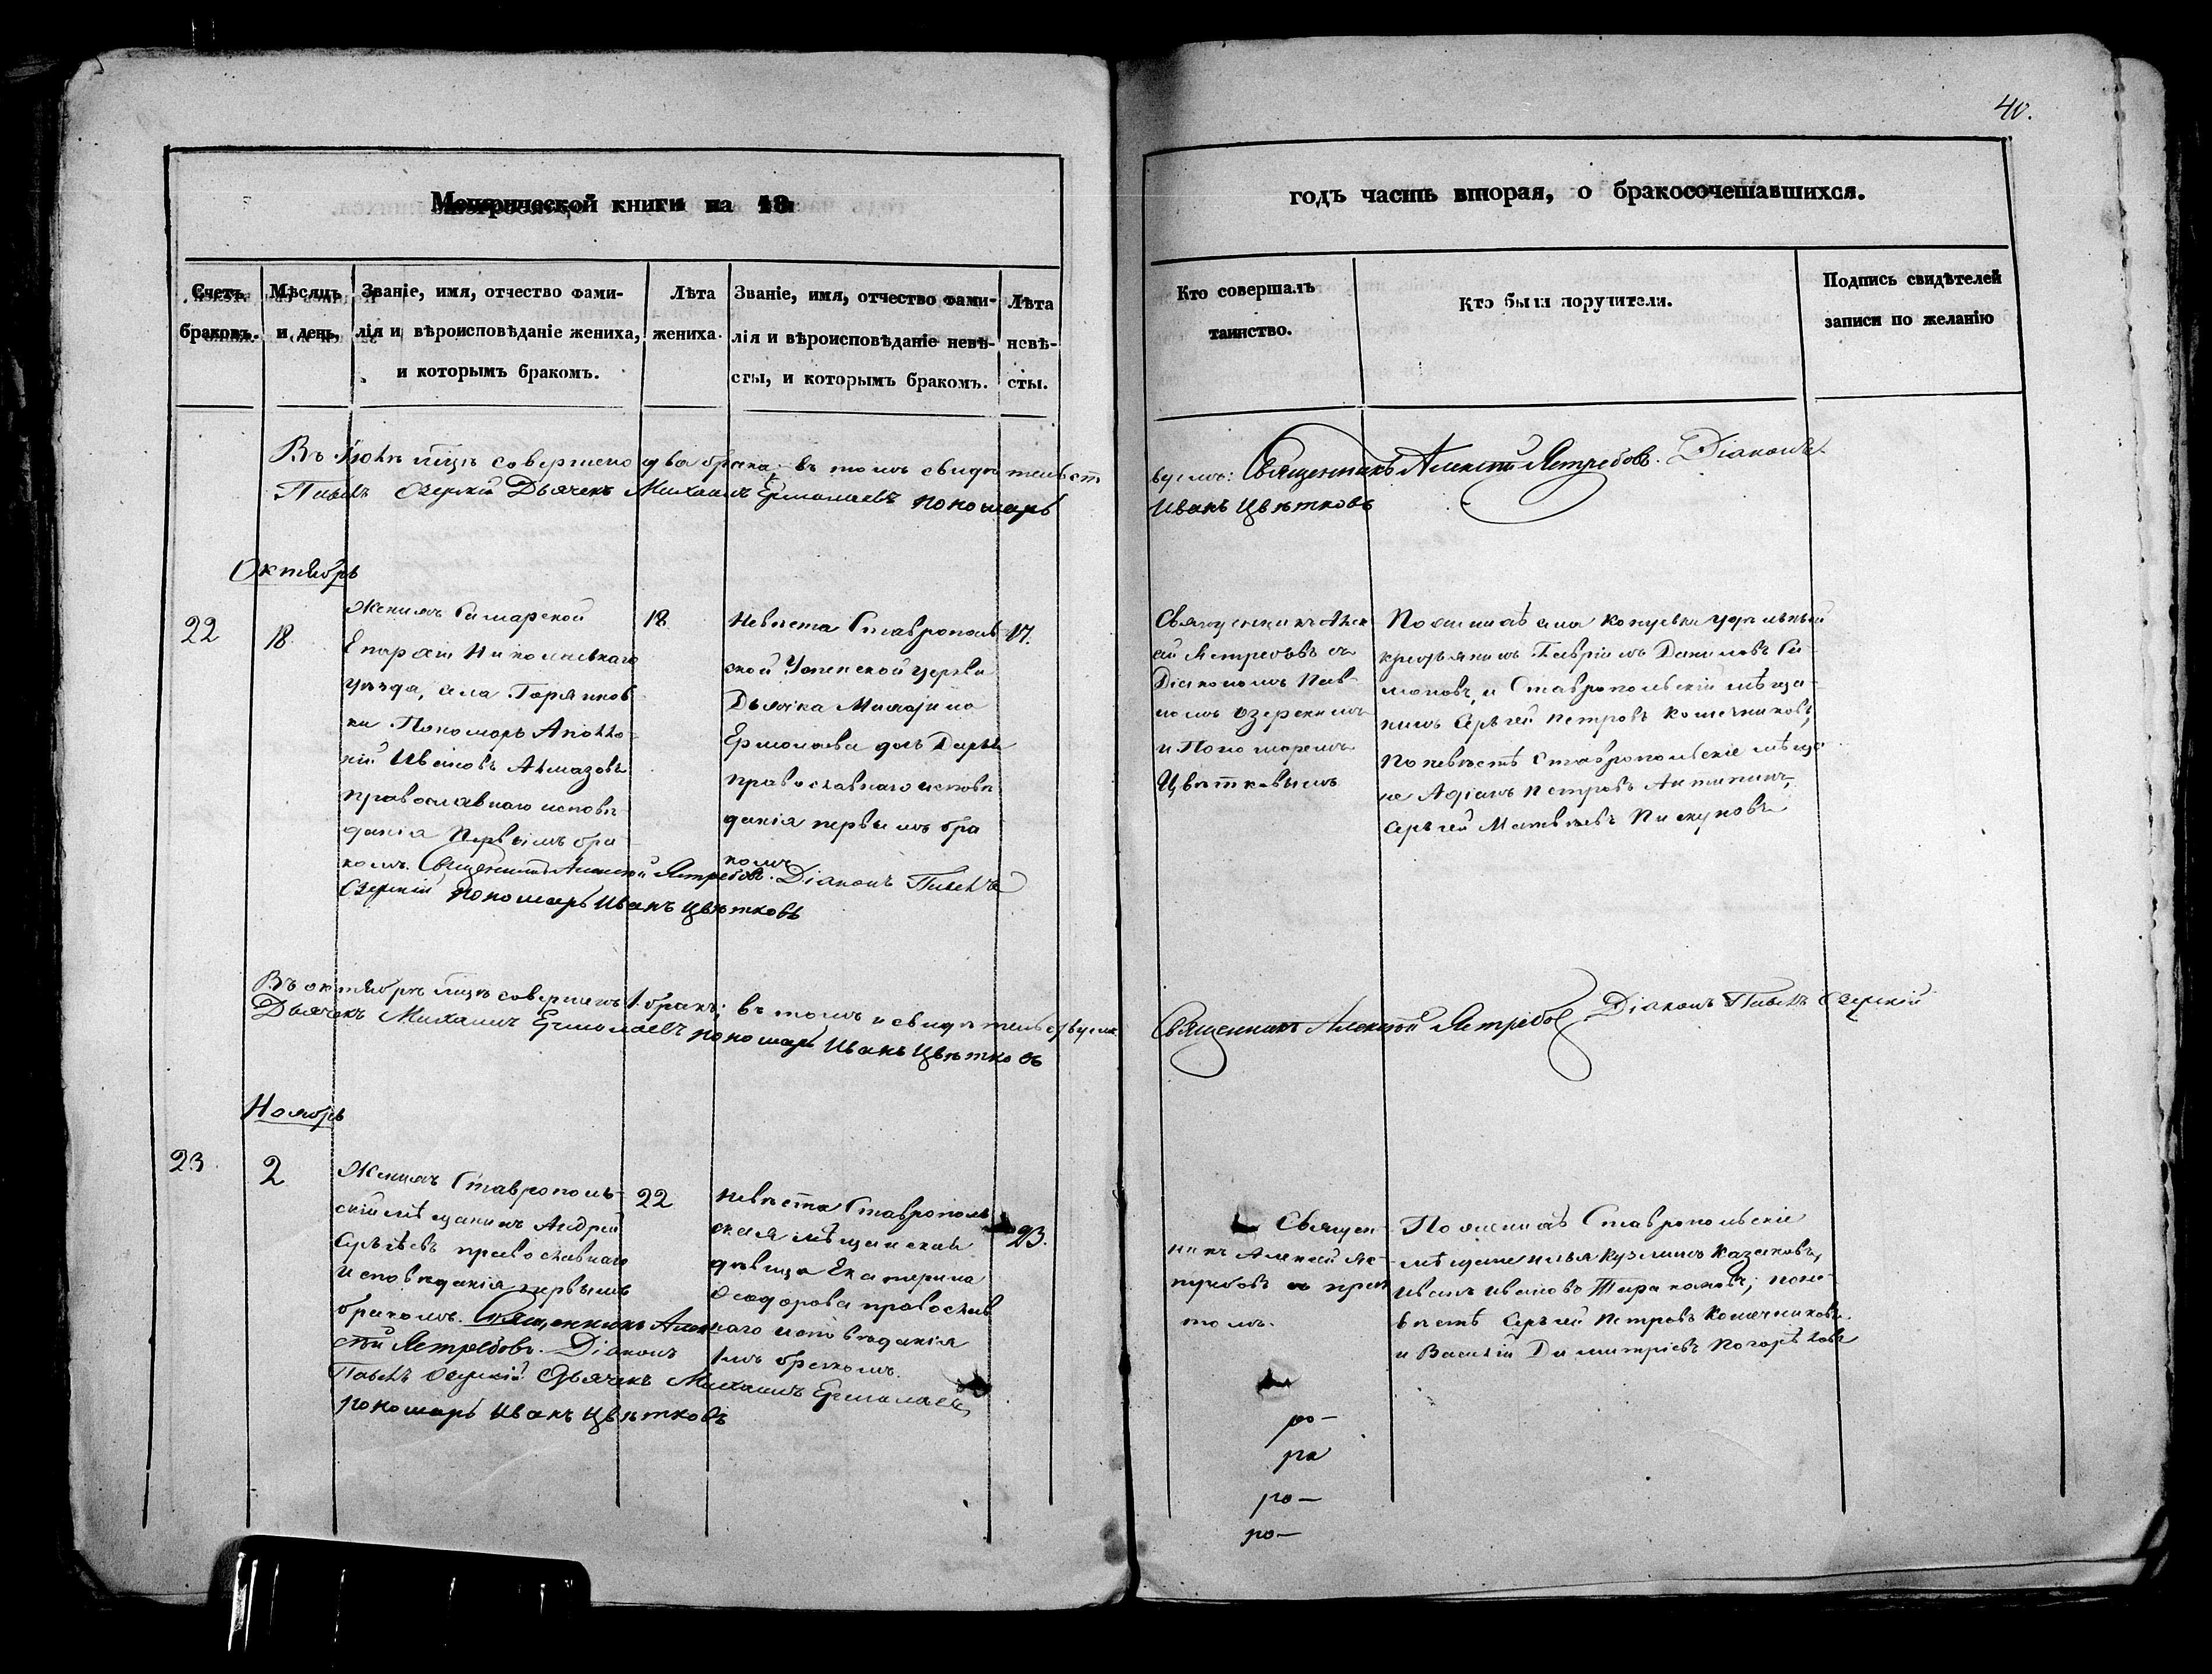 40.
Метрической книги на 18
годъ часть вторая, о бракосочетавшихся.
Счетъ браковъ.
Мѣсяцъ и день,
Званіе, имя, отчество фами-
лія и вѣроисповѣданіе жениха,
и которымъ бракомъ.
Лѣта
жениха.
Званіе, имя, отчество фами-
лія и вѣроисповѣданіе невѣ-
сты, и которымъ бракомъ.
Лѣта
невѣ-
сты.
Кто совершалъ
таинство.
Кто были поручители.
Подпись свидѣтелей
записи по желанію
Въ Іюлѣ м͠цѣ совершено два брака; въ томъ свидѣтельст
вуемъ: Священникъ Алексѣй Ястребовъ. Діаконъ
Павелъ Озерскій Дьячекъ Михаилъ Ермолаевъ пономарь
Иванъ Цвѣтковъ
Октябрь
22
18
Женихъ Самарской
Епархіи Николаевскаго
уѣзда, села Горяинов
ки Пономарь Аполло-
ній Ивановъ Алмазовъ
православнаго исповѣ
данія первымъ бра
комъ. Священникъ Алексѣй Ястребовъ. Діаконъ Павелъ
Озерскій пономарь Иванъ Цвѣтковъ
18
Невѣста Ставрополь
ской Успенской церкви
Дьячка Михаила
Ермолаева дочь Дарья
православнаго исповѣ
данія первымъ бра
комъ
17.
Священникъ Алек
ѣй Ястребовъ съ
Діакономъ Пав-
ломъ Озерскимъ
и Пономаремъ
Цвѣтковымъ
По женихѣ села удѣльный
крестьянинъ Гавріилъ Даниловъ Са-
моновъ, и Ставропольскій мѣща-
нинъ Сергѣй Петровъ Колечниковъ,
По невѣстѣ Ставропольскіе мѣща
не Адріанъ Петровъ Антипинъ,
Сергѣй Матвѣевъ Пискуновъ
Въ октябрѣ м͠цѣ совершенъ 1. бракъ; въ томъ и свидѣтельствуемъ
Священникъ Алексѣй Ястребовъ Діаконъ Павелъ Озерскій
Дьячекъ Михаилъ Ермолаевъ пономарь Иванъ Цвѣтковъ
Ноябрь
23.
2
Женихъ Ставрополь-
скій мѣщанинъ Андрей
Сергѣевъ православнаго
исповѣданія первымъ
бракомъ. Священникъ Алек
сѣй Ястребовъ. Діаконъ
Павелъ Озерскій Дьячекъ Михаилъ Ермолаевъ
пономарь Иванъ Цвѣтковъ
22
Невѣста Ставрополь
ская мѣщанская
дѣвица Екатерина
Ѳеодорова православ
наго исповѣданія
1мъ бракомъ.
23.
Священ
никъ Алексѣй Яс-
требовъ съ прич
томъ.
По женихѣ Ставропольскіе
мѣщане Илья Кузминъ Казаковъ,
Иванъ Ивановъ Таракановъ; по не-
вѣстѣ Сергѣй Петровъ Колечниковъ
и Василій Димитріевъ Погорѣловъ
ро—
ра
ро—
ро—